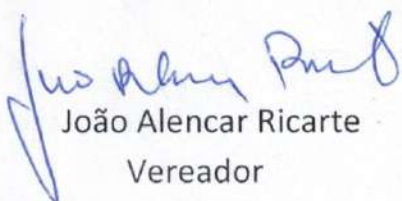 João Alencar Ricarte
Vereador